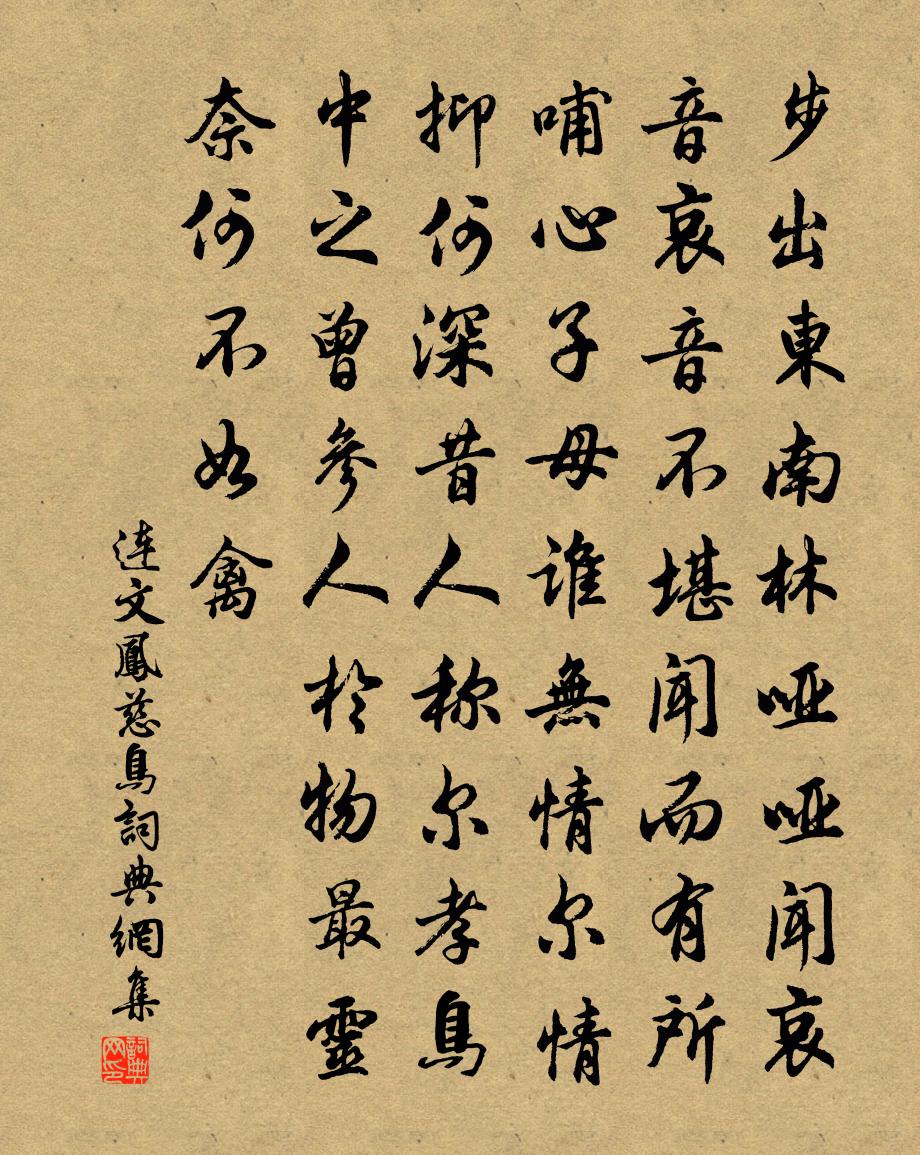 步出東南林哑哑聞哀
音哀音不堪聞而有所
哺心子母誰無情尔情
抑何深昔人称尔孝鳥
中之曾參人於物最靈
奈何不如禽
連文鳳慈烏詞典網集
詞典网印